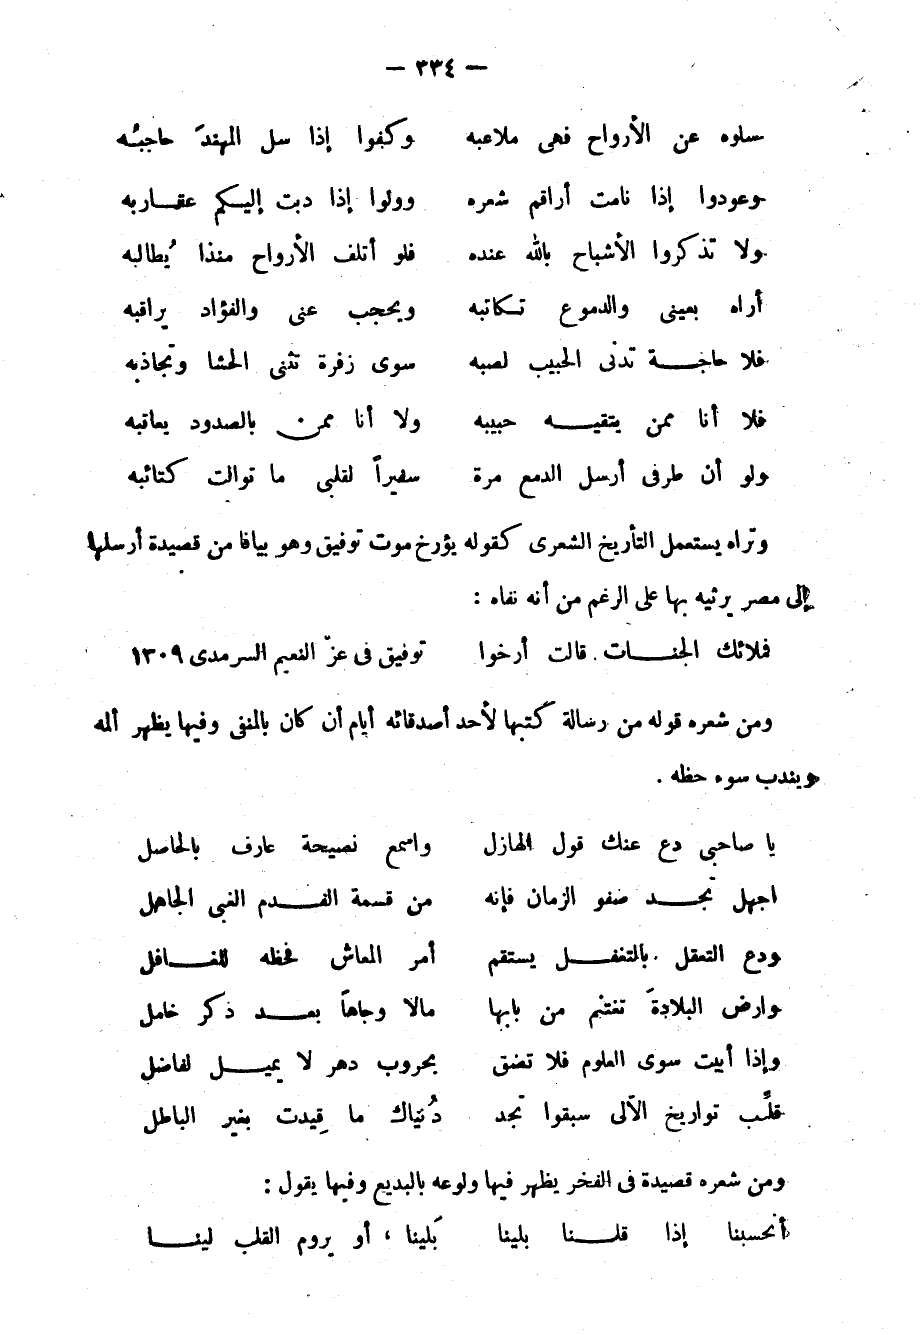 — ٣٣٤ —
سلوه عن الأرواح فهى ملاعبه وكفوا إذا سل المهندَ حاجبُه
وعودوا إذا نامت أراقم شعره وولوا إذا دبت إليكم عقاربه
ولا تذكروا الأشباح بالله عنده فلو أتلف الأرواح منذا يُطالبه
أراه بعينى والدموع تكاتبه ويحجب عنى والفؤاد يراقبه
فلا حاجة تدنى الحبيب لصبه سوى زفرة تثنى الحشا وتجاذبه
فلا أنا ممن يتقيه حبيبه ولا أنا ممن بالصدود يعاقبه
ولو أن طرفى أرسل الدمع مرة سفيراً لقلبى ما توالت كتائبه
وتراه يستعمل التأريخ الشعرى كقوله يؤرخ موت توفيق وهو بيافا من قصيدة أرسلها
إلى مصر يرثيه بها على الرغم من أنه نفاه :
فملائك الجنات قالت أرخوا توفيق فى عزّ النعيم السرمدى ١٣٠٩
ومن شعره قوله من رسالة كتبها لأحد أصدقائه أيام أن كان بالمنفى وفيها يظهر ألمه
ويندب سوء حظه .
يا صاحبى دع عنك قول الهازل واسمع نصيحة عارف بالحاصل
اجهل تجد صفو الزمان فإنه من قسمة الفدم الغبى الجاهل
ودع التعقل بالتغفل يستقم أمر المعاش فحظه للغافل
وارض البلادةَ تغتنم من بابها مالا وجاهاً بعد ذكر خامل
وإذا أبيت سوى العلوم فلا تضق بحروب دهر لا يميل لفاضل
قلِّب تواريخ الألى سبقوا تجد دُنياك ما قِيدت بغير الباطل
ومن شعره قصيدة فى الفخر يظهر فيها ولوعه بالبديع وفيها يقول :
أتحسبنا إذا قلنا بلينا بَلينا ، أو يروم القلب لينا